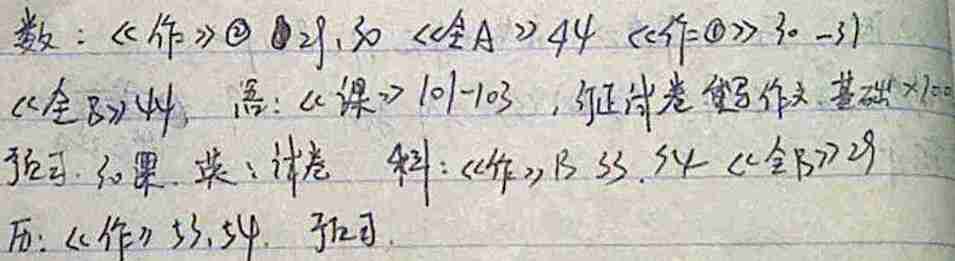 数：《作》② 29,30 《全A》44 《作①》30-31
《全B》44, 语：《课》101-103 ,订正试卷 重写作文 基础×100
预习.30课. 英：试卷 科：《作》B 53.54 《全B》29
历：《作》53,54. 预习.